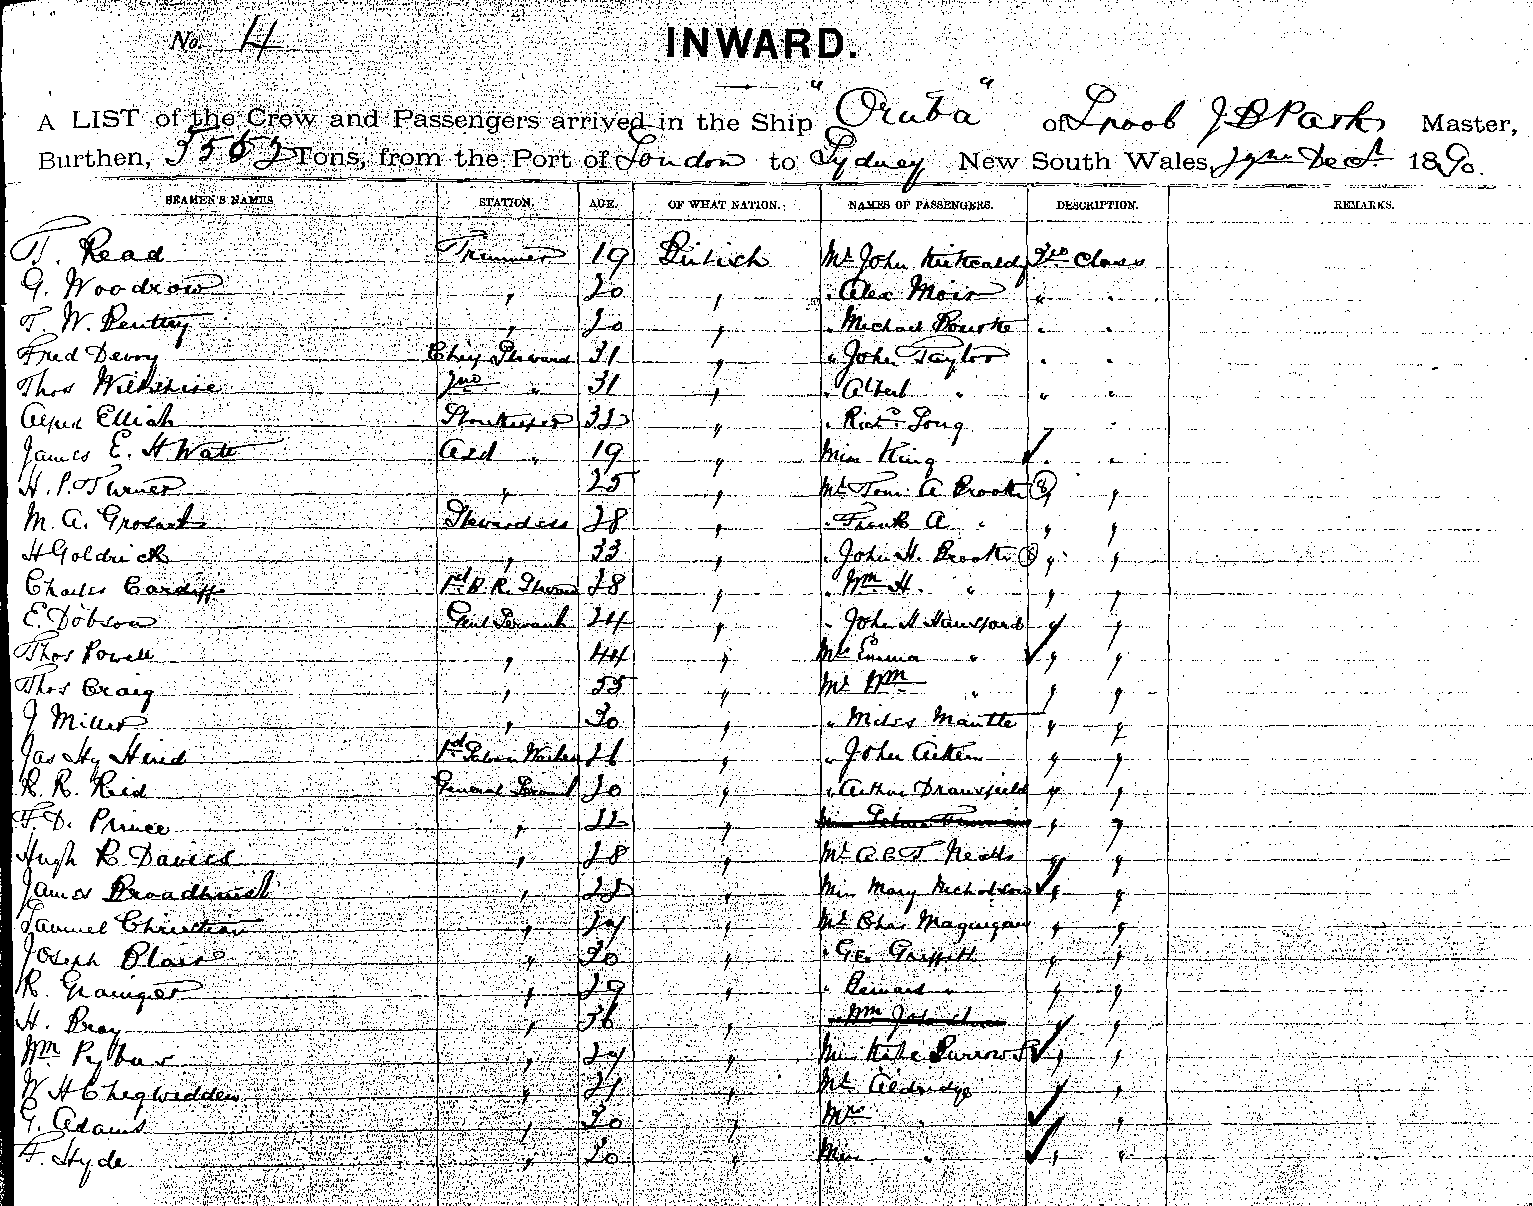 No. 4
INWARD.
A LIST of the Crew and Passengers arrived in the Ship "Oruba" of J B Park Master,
Burthen, Tons, from the Port of London to Sydney New South Wales, Decr 1890.
SEAMEN'S NAMES STATION. AGE. OF WHAT NATION. NAMES OF PASSENGERS. DESCRIPTION. REMARKS.
T. Read Trimmer 19 British Mr John Kirkcaldy 3rd Class
G. Woodrow " 20 " " Alex Moir " "
T. W. " 20 " " Michael Bourke " "
Fred Devoy Chief Steward 31 " " John Taylor " "
Thos Wiltshire 2nd " 31 " " Albert " " "
Alfred Elliott Storekeeper 32 " " Richd Long " "
James E. H Watt Asst " 19 " Miss King " "
H. P. Turner " 25 " Mr Tom A Brook 8 " "
M. A. Stewardess 28 " " Frank A " " "
H Goldrick " 33 " " John H. Brook " "
Charles Cardiff 1st B. R. 28 " " Wm H. " " "
E. Dobson Genl Servant 24 " " John H Hansford " "
Thos Powell " 44 " Mrs Emma " " "
Thos Craig " 55 " Mr Wm " " "
J Miller " 30 " " Mantle " "
Jas Hy Hind 1st Saloon 26 " " John Aitken " "
R. R. Reid General Servant 20 " " Arthur Dransfield " "
F. D. Prince " 22 " " "
Hugh R. Davies " 28 " Mr " "
James Broadhurst " " Miss Mary Nicholson " "
Samuel Christian " " Mr Chas Maguigan " "
Joseph Blair " 30 " " Geo Griffith " "
R. Grainger " 29 " " Bernard " " "
H. Bray " 36 " " Wm " "
Wm Pybus " " Miss Kate Burrows " "
W H Chegwidden " " Mr Aldridge " "
G. Adams " 30 " Mrs " " "
F. Hyde " 20 " Miss " " "